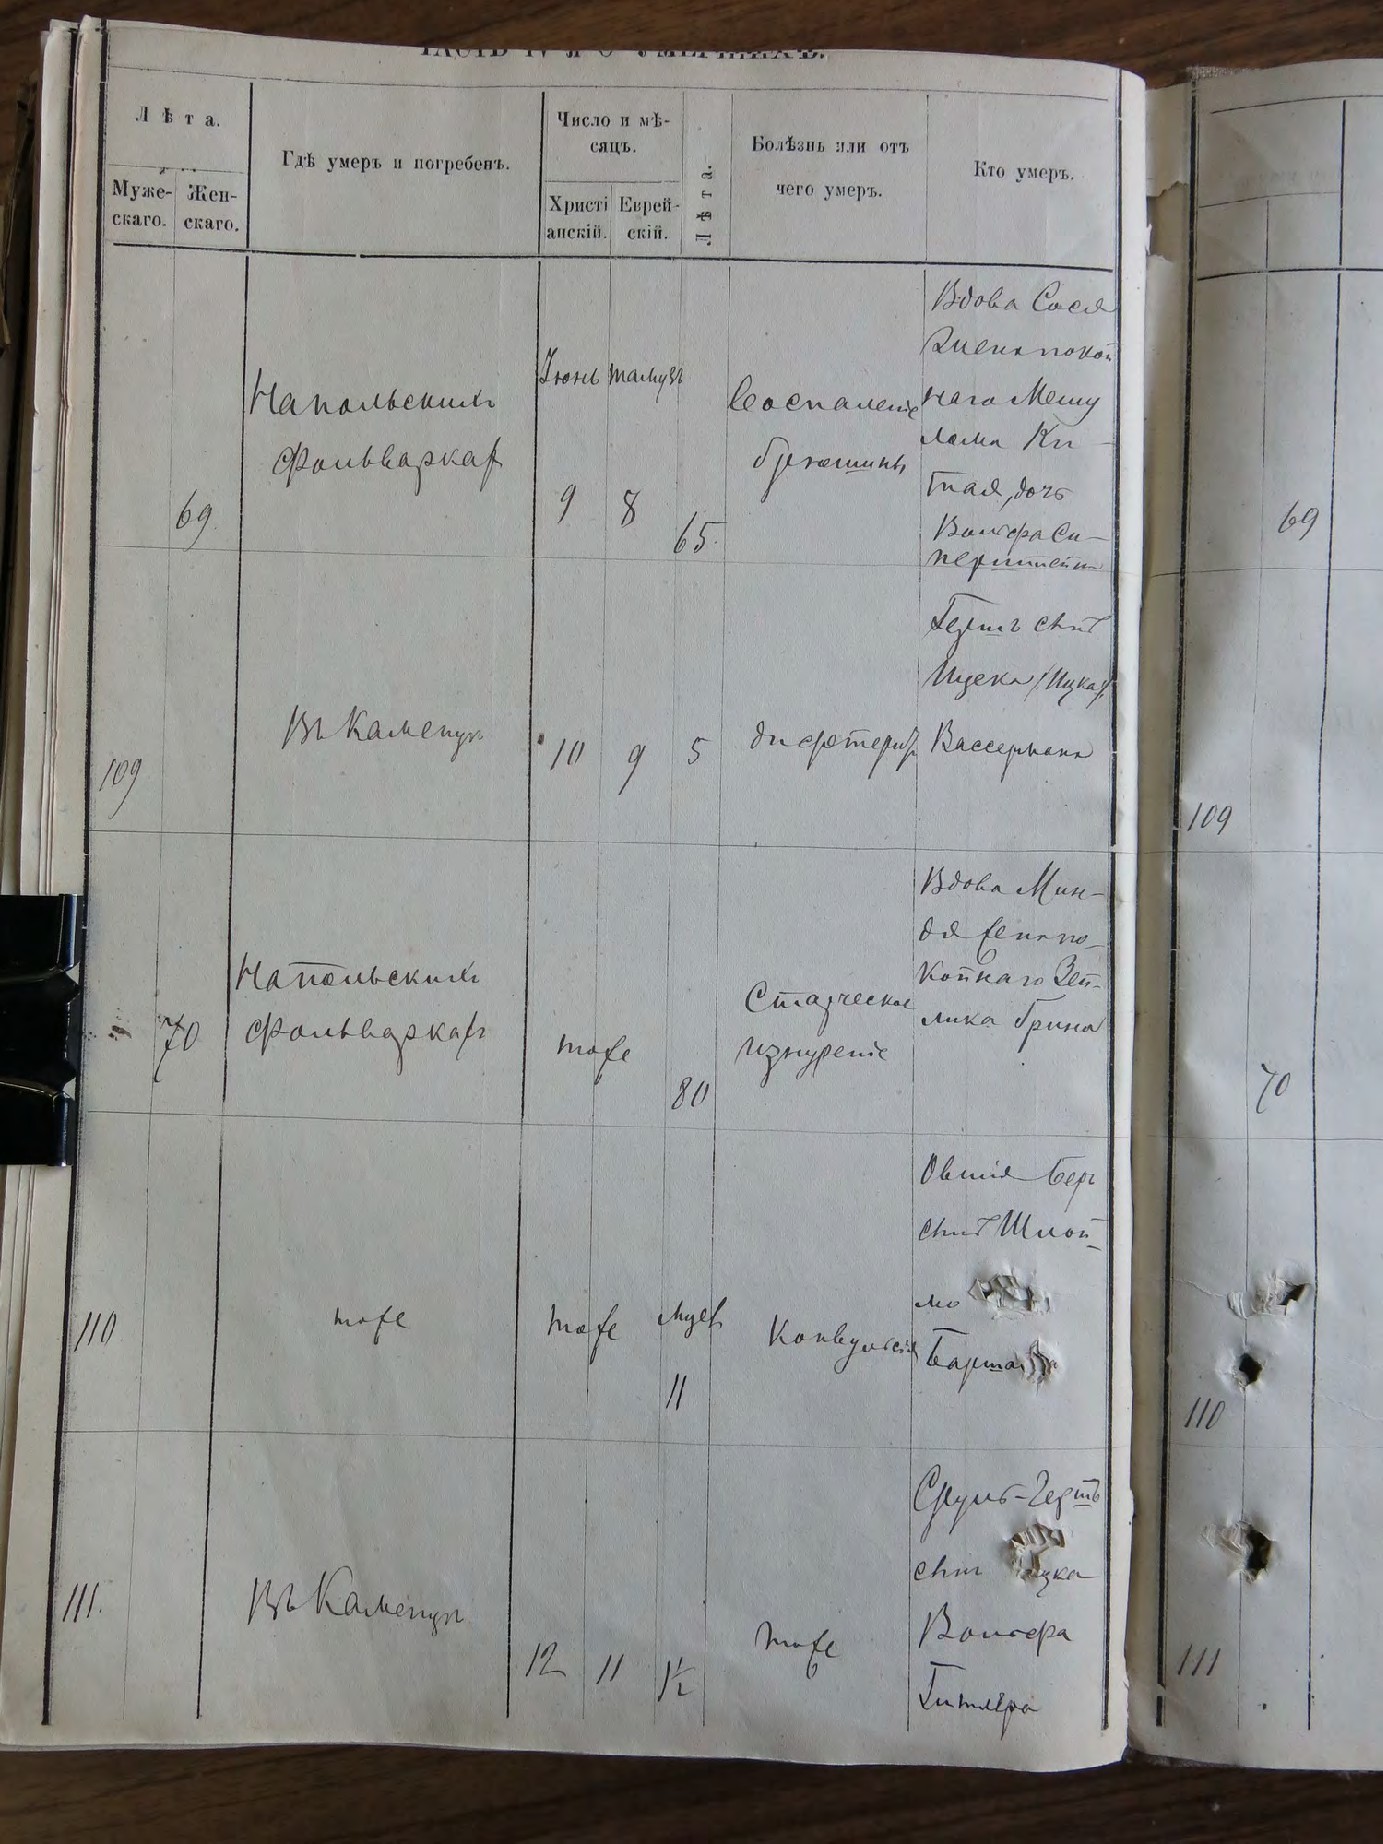 ЧАСТЬ IV-я О УМЕРШИХЪ.
Лѣта.
Муже-
скаго.
Жен-
скаго.
Гдѣ умеръ и погребенъ.
Число и мѣ-
сяцъ.
Христі
анскій.
Еврей-
скій.
Лѣта.
Болѣзнь или отъ
чего умеръ.
Кто умеръ.
69
Напольскихъ
Фольварках
Іюнь
тамузъ
9
8
65
Воспаленіе
брюшины
Вдова Сося
жена покой
наго Мешу
лама Ки-
тая, дочь
Вольфа Си-
перштейн
109
Въ Каменцѣ
10
9
5
дифтеритъ
сынъ
Ицека (Ицка),
Вассермана
70
Напольскихъ
Фольваркахъ
тоже
80
Старческое
изнуреніе
Вдова Мин-
дя жена по-
койнаго Зей-
лика Грина
110
тоже
тоже
11
Конвульсія
Овшія Беръ
сынъ Шлой-
мо
111.
Въ Каменцѣ
12
11
1½
тоже
Сруль-Гершъ
сынъ
Вольфа
Гитлера
69
109
70
110
111